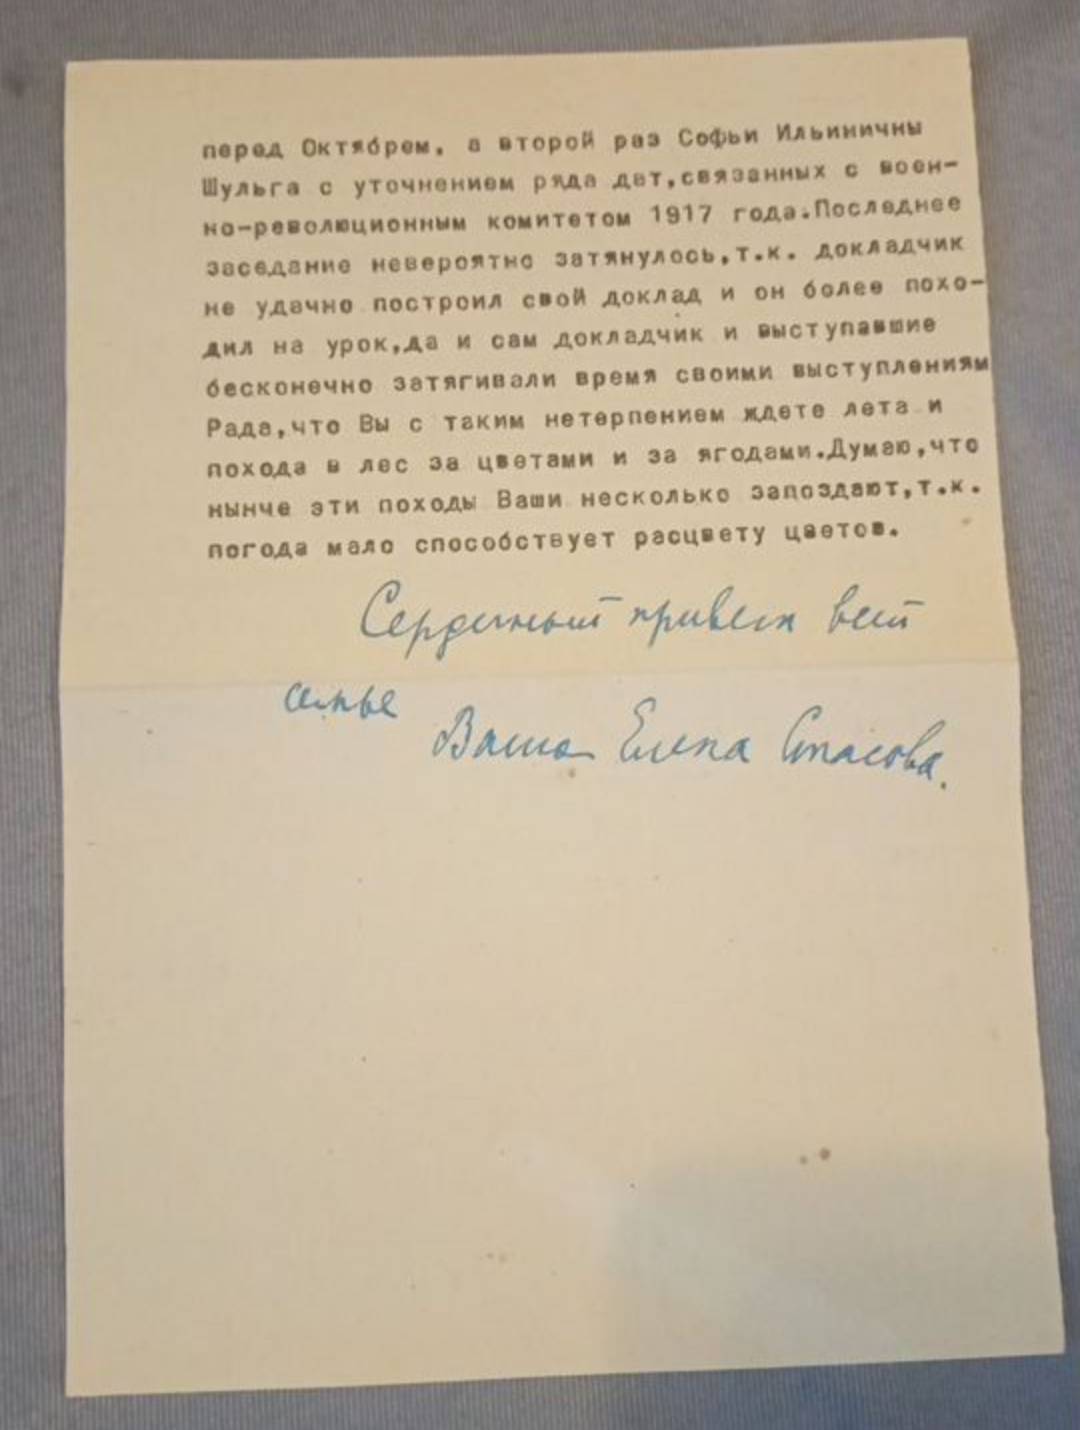 перед Октябрем, а второй раз Софьи Ильиничны
Шульга с уточнением ряда дат,связанных с воен-
но-революционным комитетом 1917 года.Последнее
заседание невероятно затянулось,т.к. докладчик
не удачно построил свой доклад и он более похо-
дил на урок,да и сам докладчик и выступавшие
бесконечно затягивали время своими выступлениям
Рада,что Вы с таким нетерпением ждете лета и
похода в лес за цветами и за ягодами.Думаю,что
нынче эти походы Ваши несколько запоздают,т.к.
погода мало способствует расцвету цветов.
Сердечный привет всей
семье
Ваша Елена Стасова.